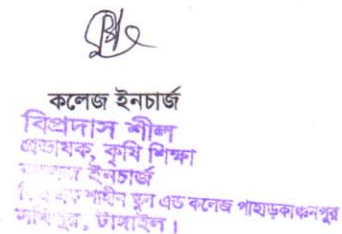 কলেজ ইনচার্জ
বিপ্রদাস শীল
প্রভাষক, কৃষি শিক্ষা
কলেজ ইনচার্জ
শাহীন স্কুল এন্ড কলেজ পাহাড়কাঞ্চনপুর
সখিপুর, টাঙ্গাইল।